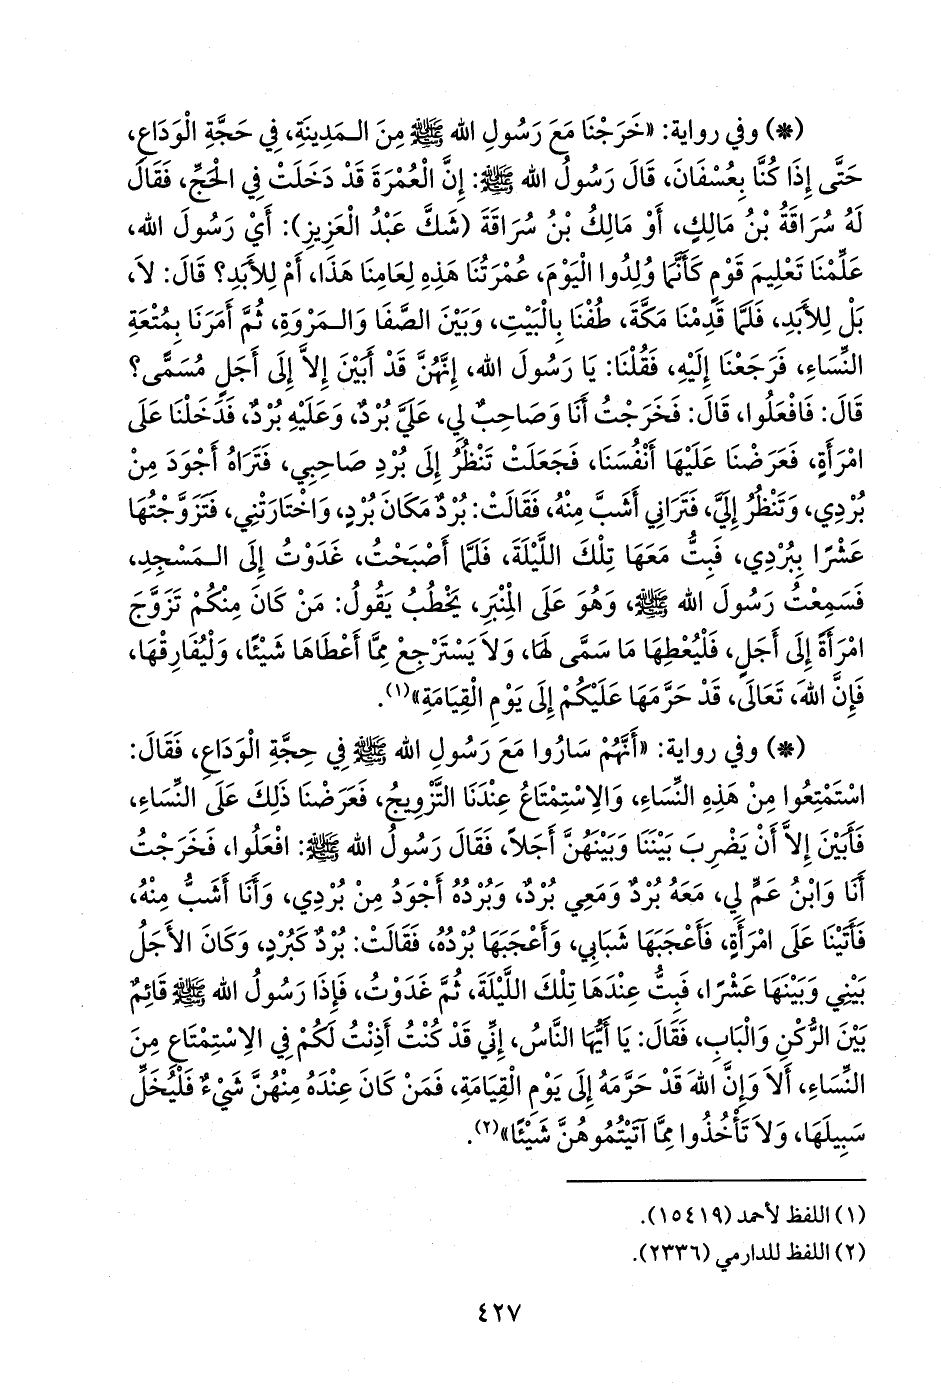 (*) وفي رواية: «خَرَجْنَا مَعَ رَسُولِ الله ﷺ مِنَ الـمَدِينَةِ، فِي حَجَّةِ الْوَدَاعِ،
حَتَّى إِذَا كُنَّا بِعُسْفَانَ، قَالَ رَسُولُ الله ﷺ: إِنَّ الْعُمْرَةَ قَدْ دَخَلَتْ فِي الْحَجِّ، فَقَالَ
لَهُ سُرَاقَةُ بْنُ مَالِكٍ، أَوْ مَالِكُ بْنُ سُرَاقَةَ (شَكَّ عَبْدُ الْعَزِيزِ): أَيْ رَسُولَ الله،
عَلِّمْنَا تَعْلِيمَ قَوْمٍ كَأَنَّمَا وُلِدُوا الْيَوْمَ، عُمْرَتُنَا هَذِهِ لِعَامِنَا هَذَا، أَمْ لِلأَبَدِ؟ قَالَ: لاَ،
بَلْ لِلأَبَدِ، فَلَمَّا قَدِمْنَا مَكَّةَ، طُفْنَا بِالْبَيْتِ، وَبَيْنَ الصَّفَا وَالـمَرْوَةِ، ثُمَّ أَمَرَنَا بِمُتْعَةِ
النِّسَاءِ، فَرَجَعْنَا إِلَيْهِ، فَقُلْنَا: يَا رَسُولَ الله، إِنَّهُنَّ قَدْ أَبَيْنَ إِلاَّ إِلَى أَجَلٍ مُسَمًّى؟
قَالَ: فَافْعَلُوا، قَالَ: فَخَرَجْتُ أَنَا وَصَاحِبٌ لِي، عَلَيَّ بُرْدٌ، وَعَلَيْهِ بُرْدٌ، فَدَخَلْنَا عَلَى
امْرَأَةٍ، فَعَرَضْنَا عَلَيْهَا أَنْفُسَنَا، فَجَعَلَتْ تَنْظُرُ إِلَى بُرْدِ صَاحِبِي، فَتَرَاهُ أَجْوَدَ مِنْ
بُرْدِي، وَتَنْظُرُ إِلَيَّ، فَتَرَانِي أَشَبَّ مِنْهُ، فَقَالَتْ: بُرْدٌ مَكَانَ بُرْدٍ، وَاخْتَارَتْنِي، فَتَزَوَّجْتُهَا
عَشْرًا بِبُرْدِي، فَبِتُّ مَعَهَا تِلْكَ اللَّيْلَةَ، فَلَمَّا أَصْبَحْتُ، غَدَوْتُ إِلَى الـمَسْجِدِ،
فَسَمِعْتُ رَسُولَ الله ﷺ، وَهُوَ عَلَى الْمِنْبَرِ، يَخْطُبُ يَقُولُ: مَنْ كَانَ مِنْكُمْ تَزَوَّجَ
امْرَأَةً إِلَى أَجَلٍ، فَلْيُعْطِهَا مَا سَمَّى لَهَا، وَلاَ يَسْتَرْجِعْ مِمَّا أَعْطَاهَا شَيْئًا، وَلْيُفَارِقْهَا،
فَإِنَّ اللهَ، تَعَالَى، قَدْ حَرَّمَهَا عَلَيْكُمْ إِلَى يَوْمِ الْقِيَامَةِ»(١).
(*) وفي رواية: «أَنَّهُمْ سَارُوا مَعَ رَسُولِ الله ﷺ فِي حِجَّةِ الْوَدَاعِ، فَقَالَ:
اسْتَمْتِعُوا مِنْ هَذِهِ النِّسَاءِ، وَالاِسْتِمْتَاعُ عِنْدَنَا التَّزْوِيجُ، فَعَرَضْنَا ذَلِكَ عَلَى النِّسَاءِ،
فَأَبَيْنَ إِلاَّ أَنْ يَضْرِبَ بَيْنَنَا وَبَيْنَهُنَّ أَجَلاً، فَقَالَ رَسُولُ الله ﷺ: افْعَلُوا، فَخَرَجْتُ
أَنَا وَابْنُ عَمٍّ لِي، مَعَهُ بُرْدٌ وَمَعِي بُرْدٌ، وَبُرْدُهُ أَجْوَدُ مِنْ بُرْدِي، وَأَنَا أَشَبُّ مِنْهُ،
فَأَتَيْنَا عَلَى امْرَأَةٍ، فَأَعْجَبَهَا شَبَابِي، وَأَعْجَبَهَا بُرْدُهُ، فَقَالَتْ: بُرْدٌ كَبُرْدٍ، وَكَانَ الأَجَلُ
بَيْنِي وَبَيْنَهَا عَشْرًا، فَبِتُّ عِنْدَهَا تِلْكَ اللَّيْلَةَ، ثُمَّ غَدَوْتُ، فَإِذَا رَسُولُ الله ﷺ قَائِمٌ
بَيْنَ الرُّكْنِ وَالْبَابِ، فَقَالَ: يَا أَيُّهَا النَّاسُ، إِنِّي قَدْ كُنْتُ أَذِنْتُ لَكُمْ فِي الاِسْتِمْتَاعِ مِنَ
النِّسَاءِ، أَلاَ وَإِنَّ اللهَ قَدْ حَرَّمَهُ إِلَى يَوْمِ الْقِيَامَةِ، فَمَنْ كَانَ عِنْدَهُ مِنْهُنَّ شَيْءٌ فَلْيُخَلِّ
سَبِيلَهَا، وَلاَ تَأْخُذُوا مِمَّا آتَيْتُمُوهُنَّ شَيْئًا»(٢).
(١) اللفظ لأحمد (١٥٤١٩).
(٢) اللفظ للدارمي (٢٣٣٦).
٤٢٧